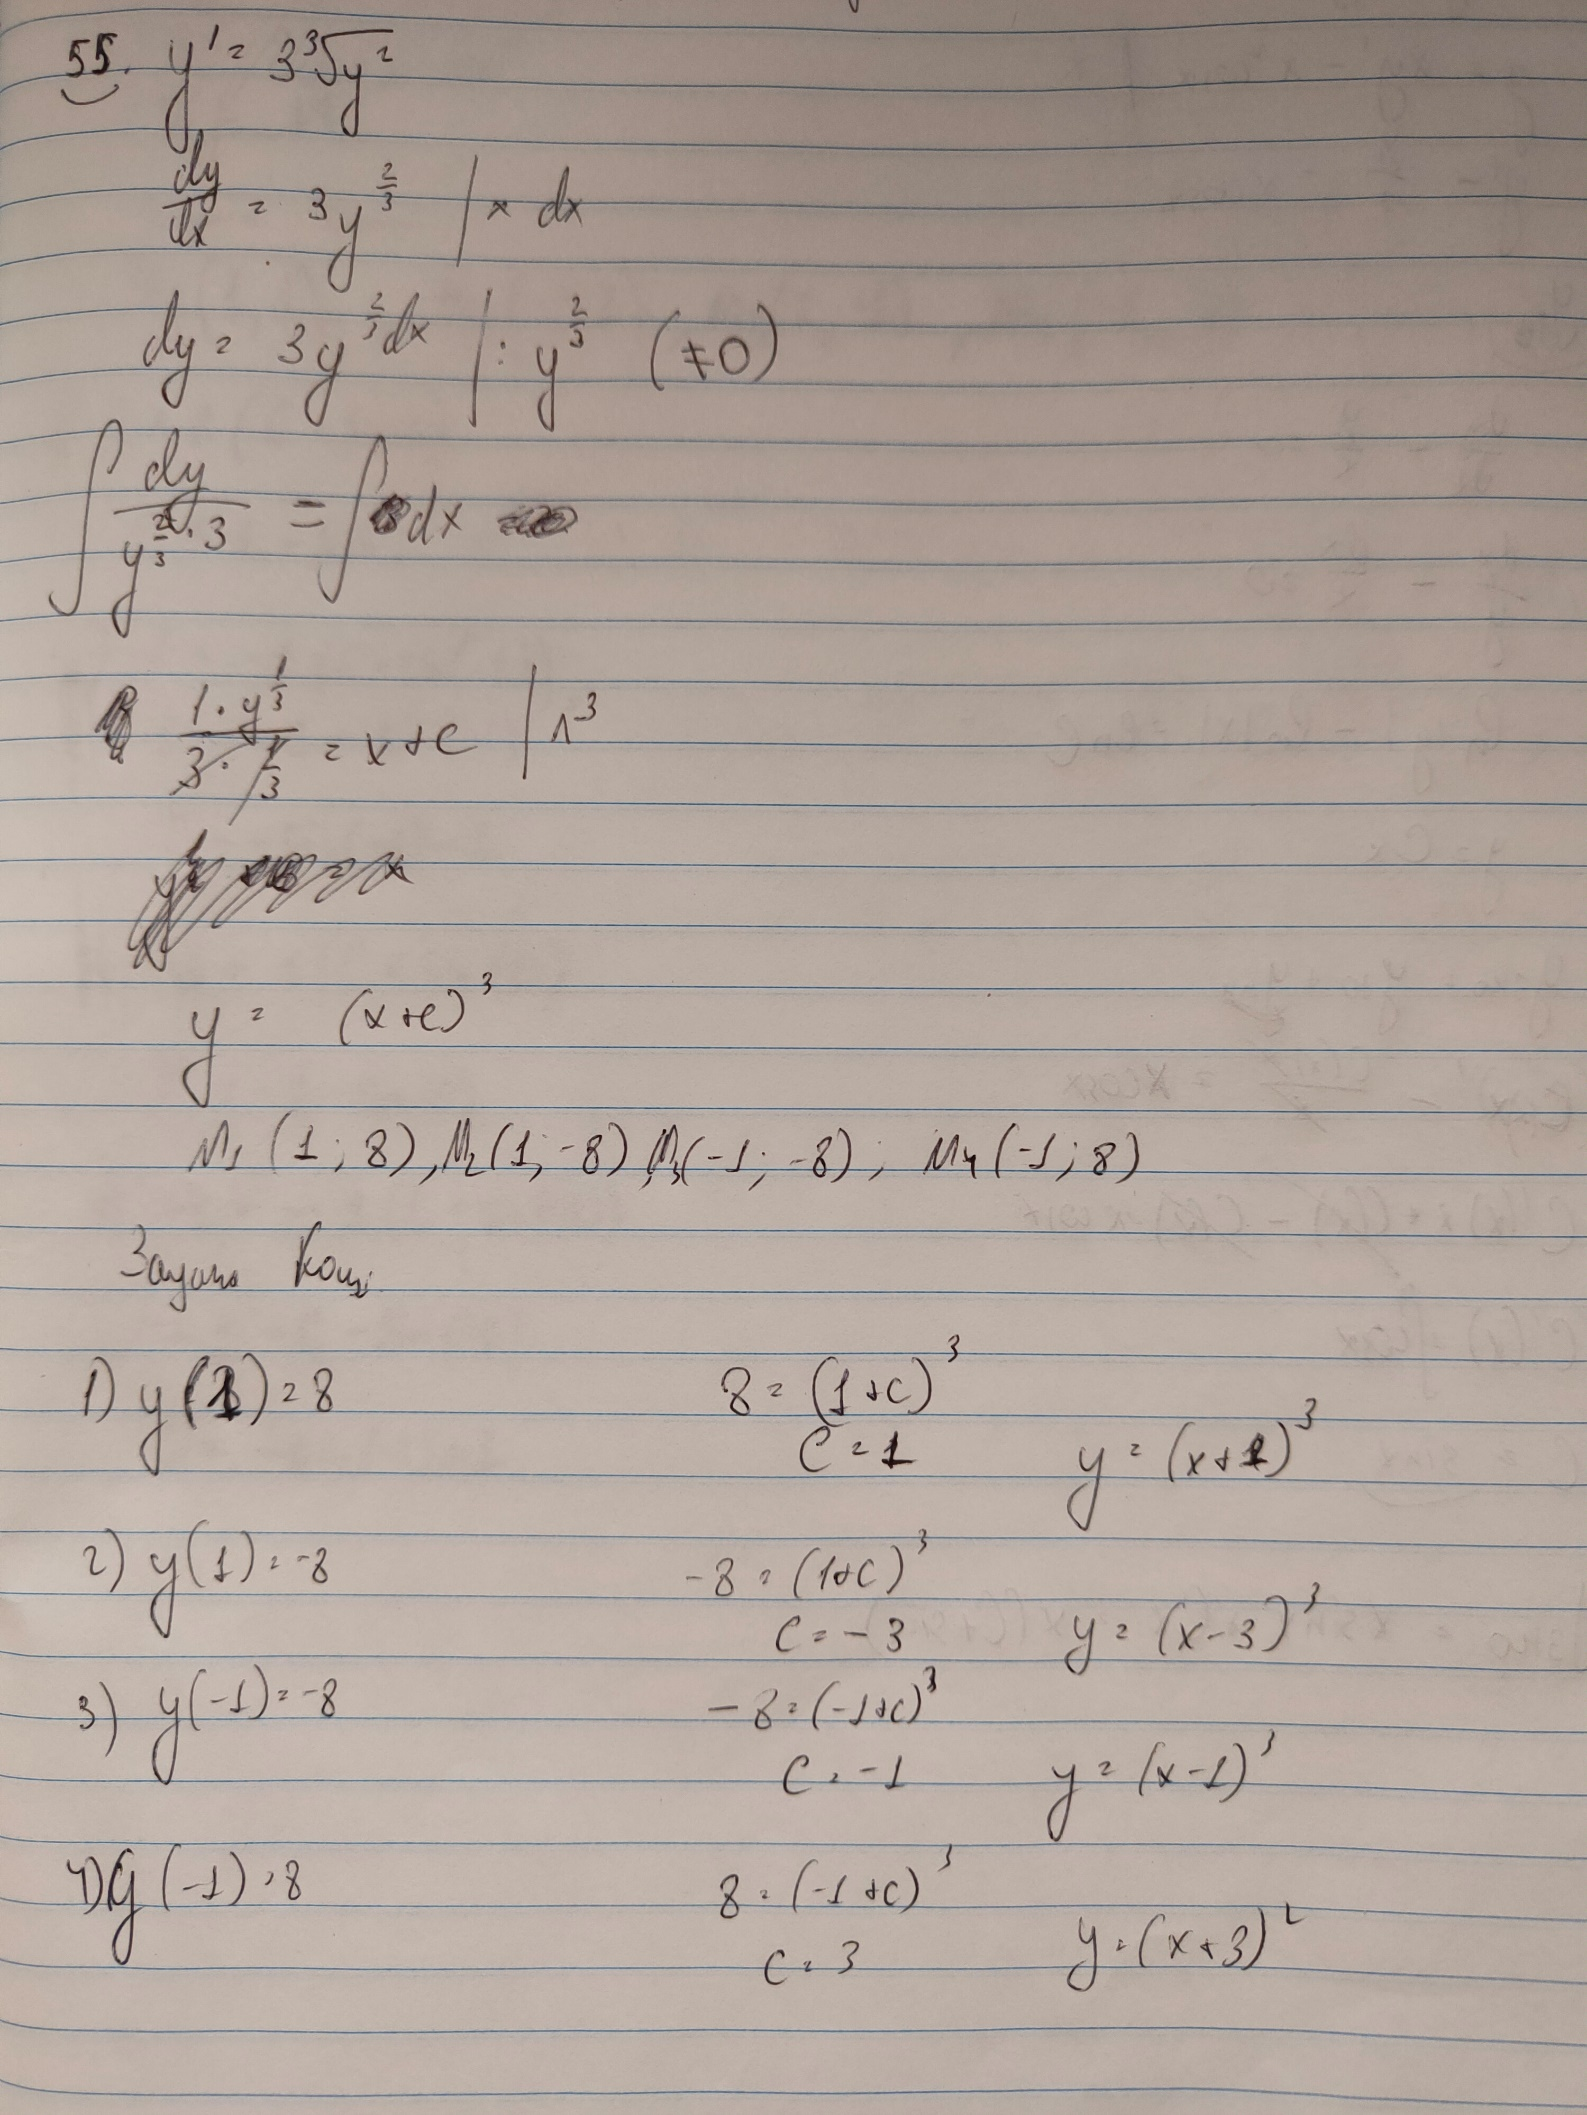 55. y' = 3∛y²
dy/dx = 3y^(2/3) | × dx
dy = 3y^(2/3) dx | : y^(2/3) (≠0)
∫ dy/(y^(2/3) · 3) = ∫ dx
(1 · y^(1/3))/(3 · 1/3) = x + C | ^3
y = (x+c)³
M₁ (1 ; 8), M₂ (1; -8) M₃(-1; -8); M₄ (-1; 8)
Задача Коші
1) y(1) = 8 8 = (1+C)³
C = 1 y = (x+1)³
2) y(1) = -8 -8 = (1+C)³
C = -3 y = (x-3)³
3) y(-1) = -8 -8 = (-1+C)³
C = -1 y = (x-1)³
4) y(-1) = 8 8 = (-1+C)³
C = 3 y = (x+3)²